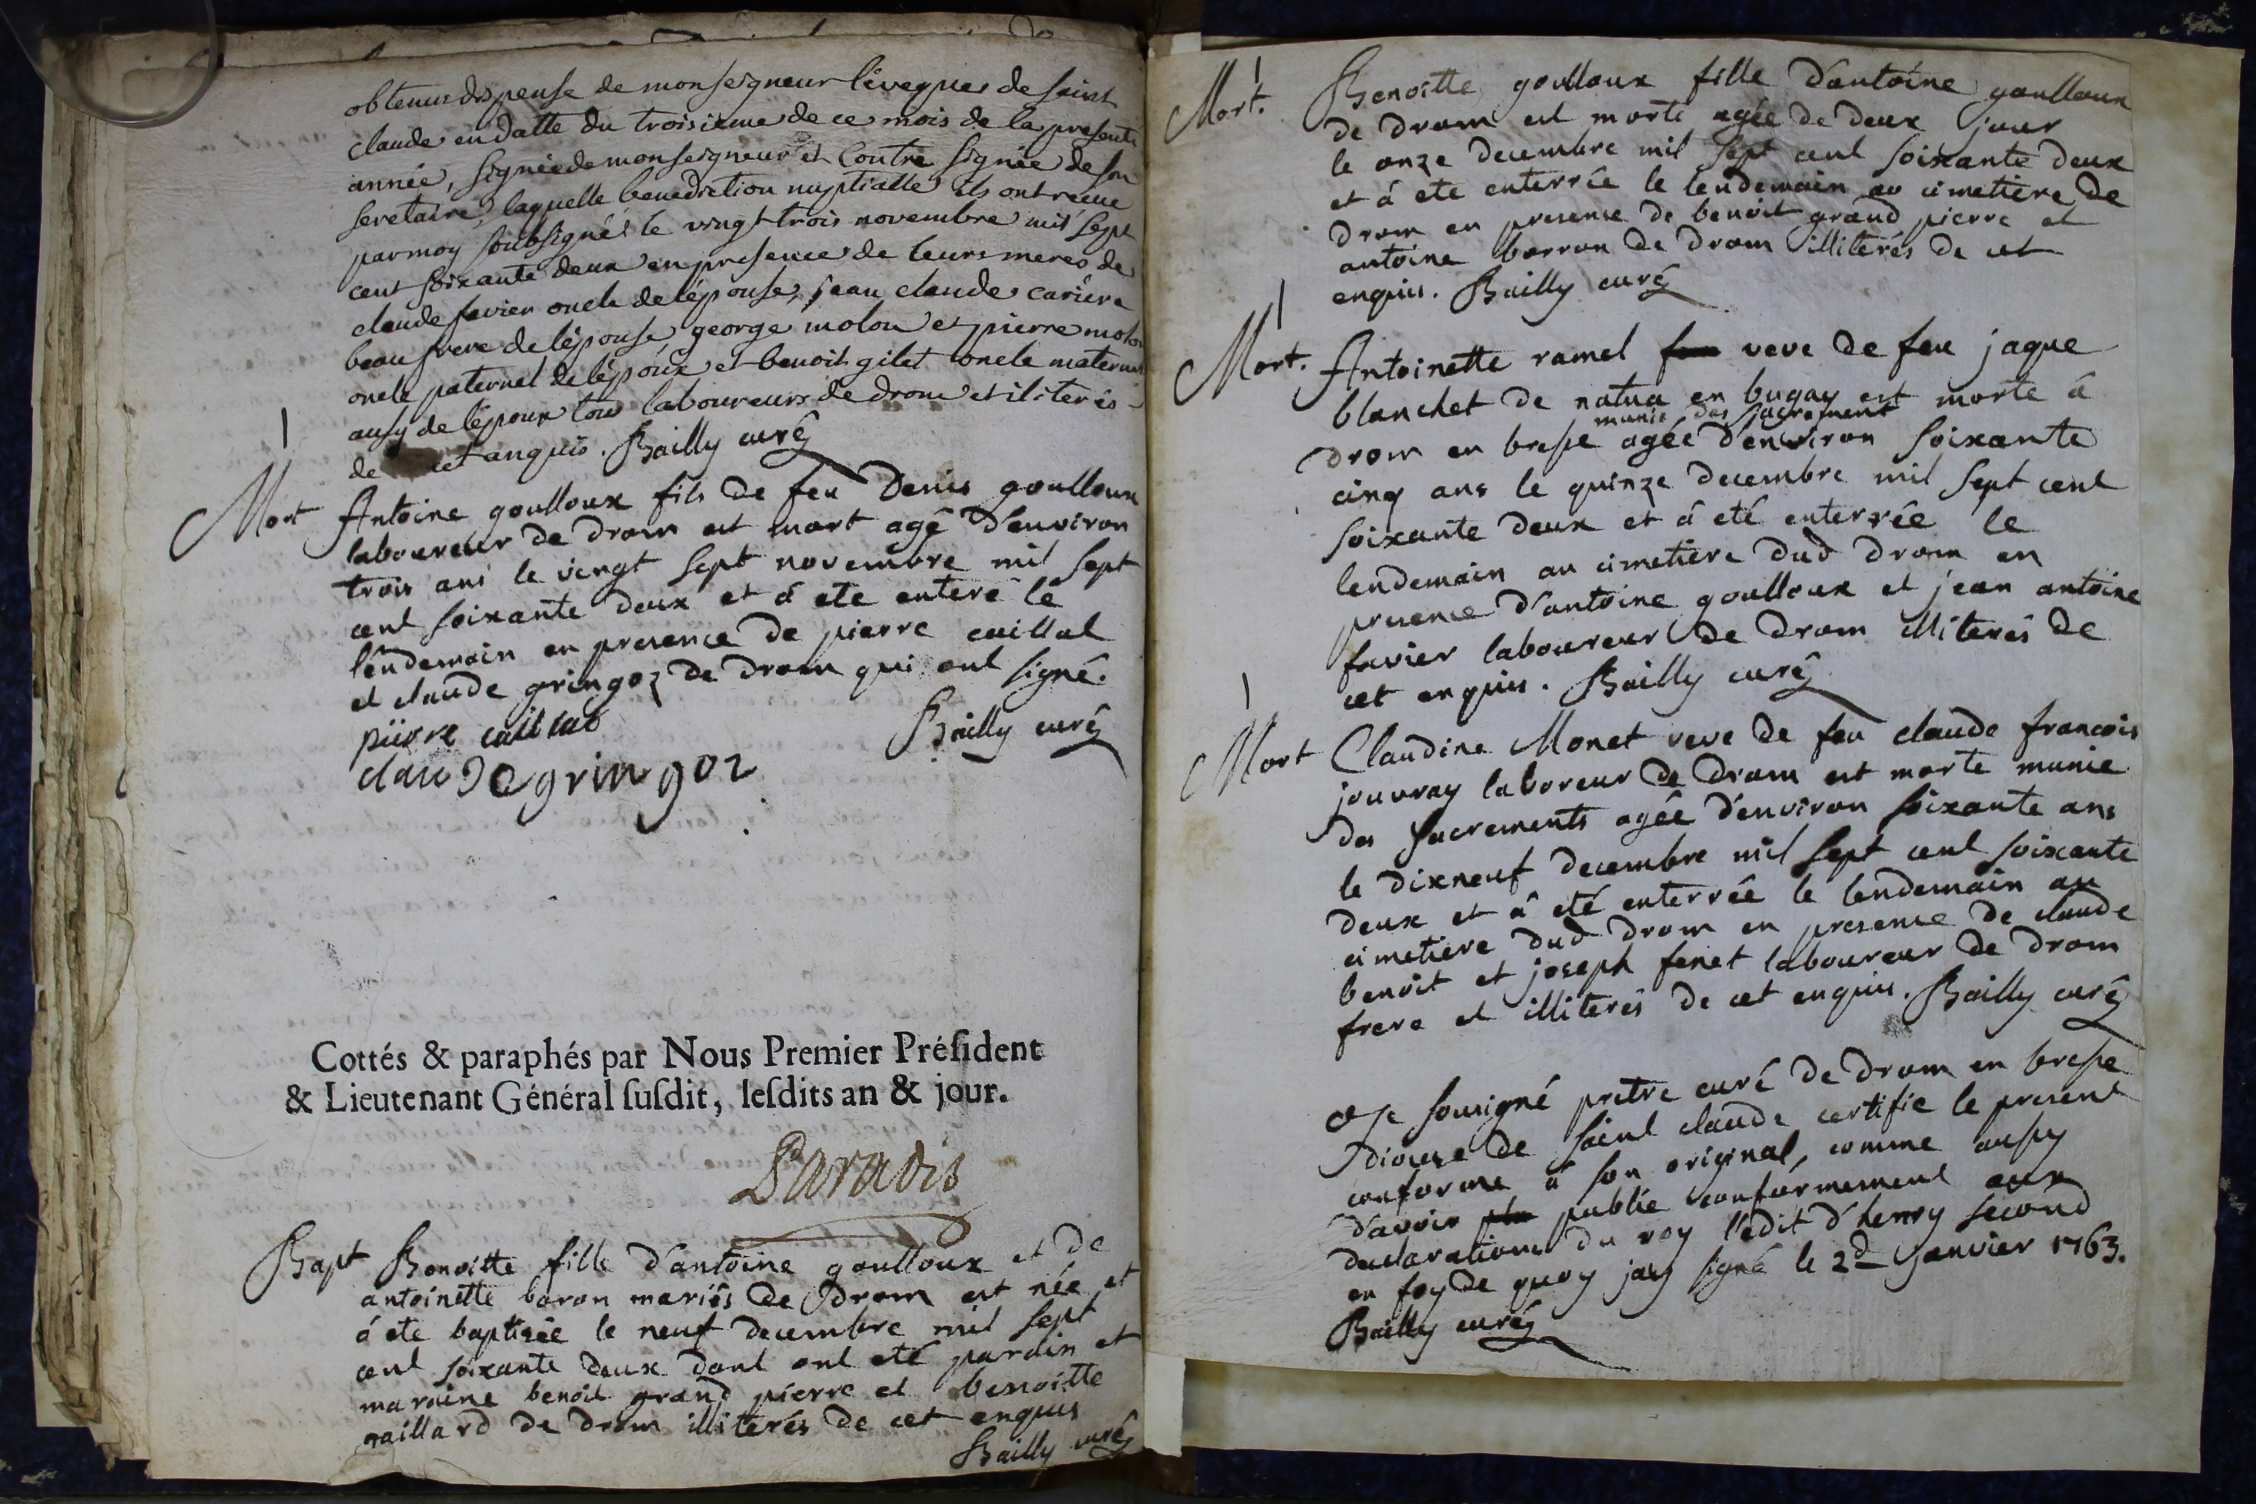 obtenus dispense de monseigneur lévêques de saint
claude en datte du troisieme de ce mois de la presente
année, signée de monseigneur et Contre signée de son
seretaire, laquelle benediction nuptialle ils ont reçue
par moy soubsigné le vingt trois novembre mil sept
cent soixante deux en presence de leurs meres de
claude favier oncle de lépouse, jean claude cariere
beau frere de lépouse, george molon et pierre molon
oncle paternel de lépoux et benoit gilet oncle maternel
ausy de lépoux tous laboureurs de drom et iliterés
de cet anquis. Bailly curé
Mort Antoine goulloux fils de feu Denis goulloux
laboureur de drom est mort agé d'environ
trois ans le vingt sept novembre mil sept
cent soixante deux et á ete enteré le
lendemain en presence de pierre caillat
et claude gringoz de drom qui ont signé.
piierre caillat Bailly curé
claude gringoz
Cottés & paraphés par Nous Premier Préſident
& Lieutenant Général ſuſdit, leſdits an & jour.
Paradis
Bapt Benoitte fille d'antoine goulloux et de
antoinette boron mariés de Drom est née et
á ete baptisée le neuf decembre mil sept
cent soixante deux dont ont eté parain et
maraine benoit grand pierre et benoitte
gaillard de drom illiterés de cet enquis
Bailly curé
Mort. Benoitte goulloux fille d'antoine goulloux
de drom est morte agée de deux jour
le onze decembre mil sept cent soixante deux
et á ete enterrée le lendemain au cimetiere de
drom en presense de benoit grand pierre et
antoine borron de drom illiterés de cet
enquis. Bailly curé
Mort. Antoinette ramel veve de feu jaque
blanchet de natua en bugay est morte á
munie des sacrement
drom en bresse agée d'environ soixante
cinq ans le quinze decembre mil sept cent
soixante deux et á eté enterrée le
lendemain au cimetiere dud drom en
presence d'antoine goulloux et jean antoine
favier laboureur de drom illiterés de
cet enquis. Bailly curé
Mort Claudine Monet veve de feu claude francois
jouvray laboreur de drom est morte munie
des sacrements agée d'environ soixante ans
le dixneuf decembre mil sept cent soixante
deux et á eté enterrée le lendemain au
cimetiere dud drom en presence de claude
benoit et joseph fenet laboureur de drom
frere et illiterés de cet enquis. Bailly curé
Je sousigné pretre curé de drom en bresse
diocese de saint claude certifie le present
conforme á son original, comme aussy
d'avoir publié conformement aux
declarations du roy l'édit d'henry second
en foy de quoy jay signé le 2d janvier 1763.
Bailly curé